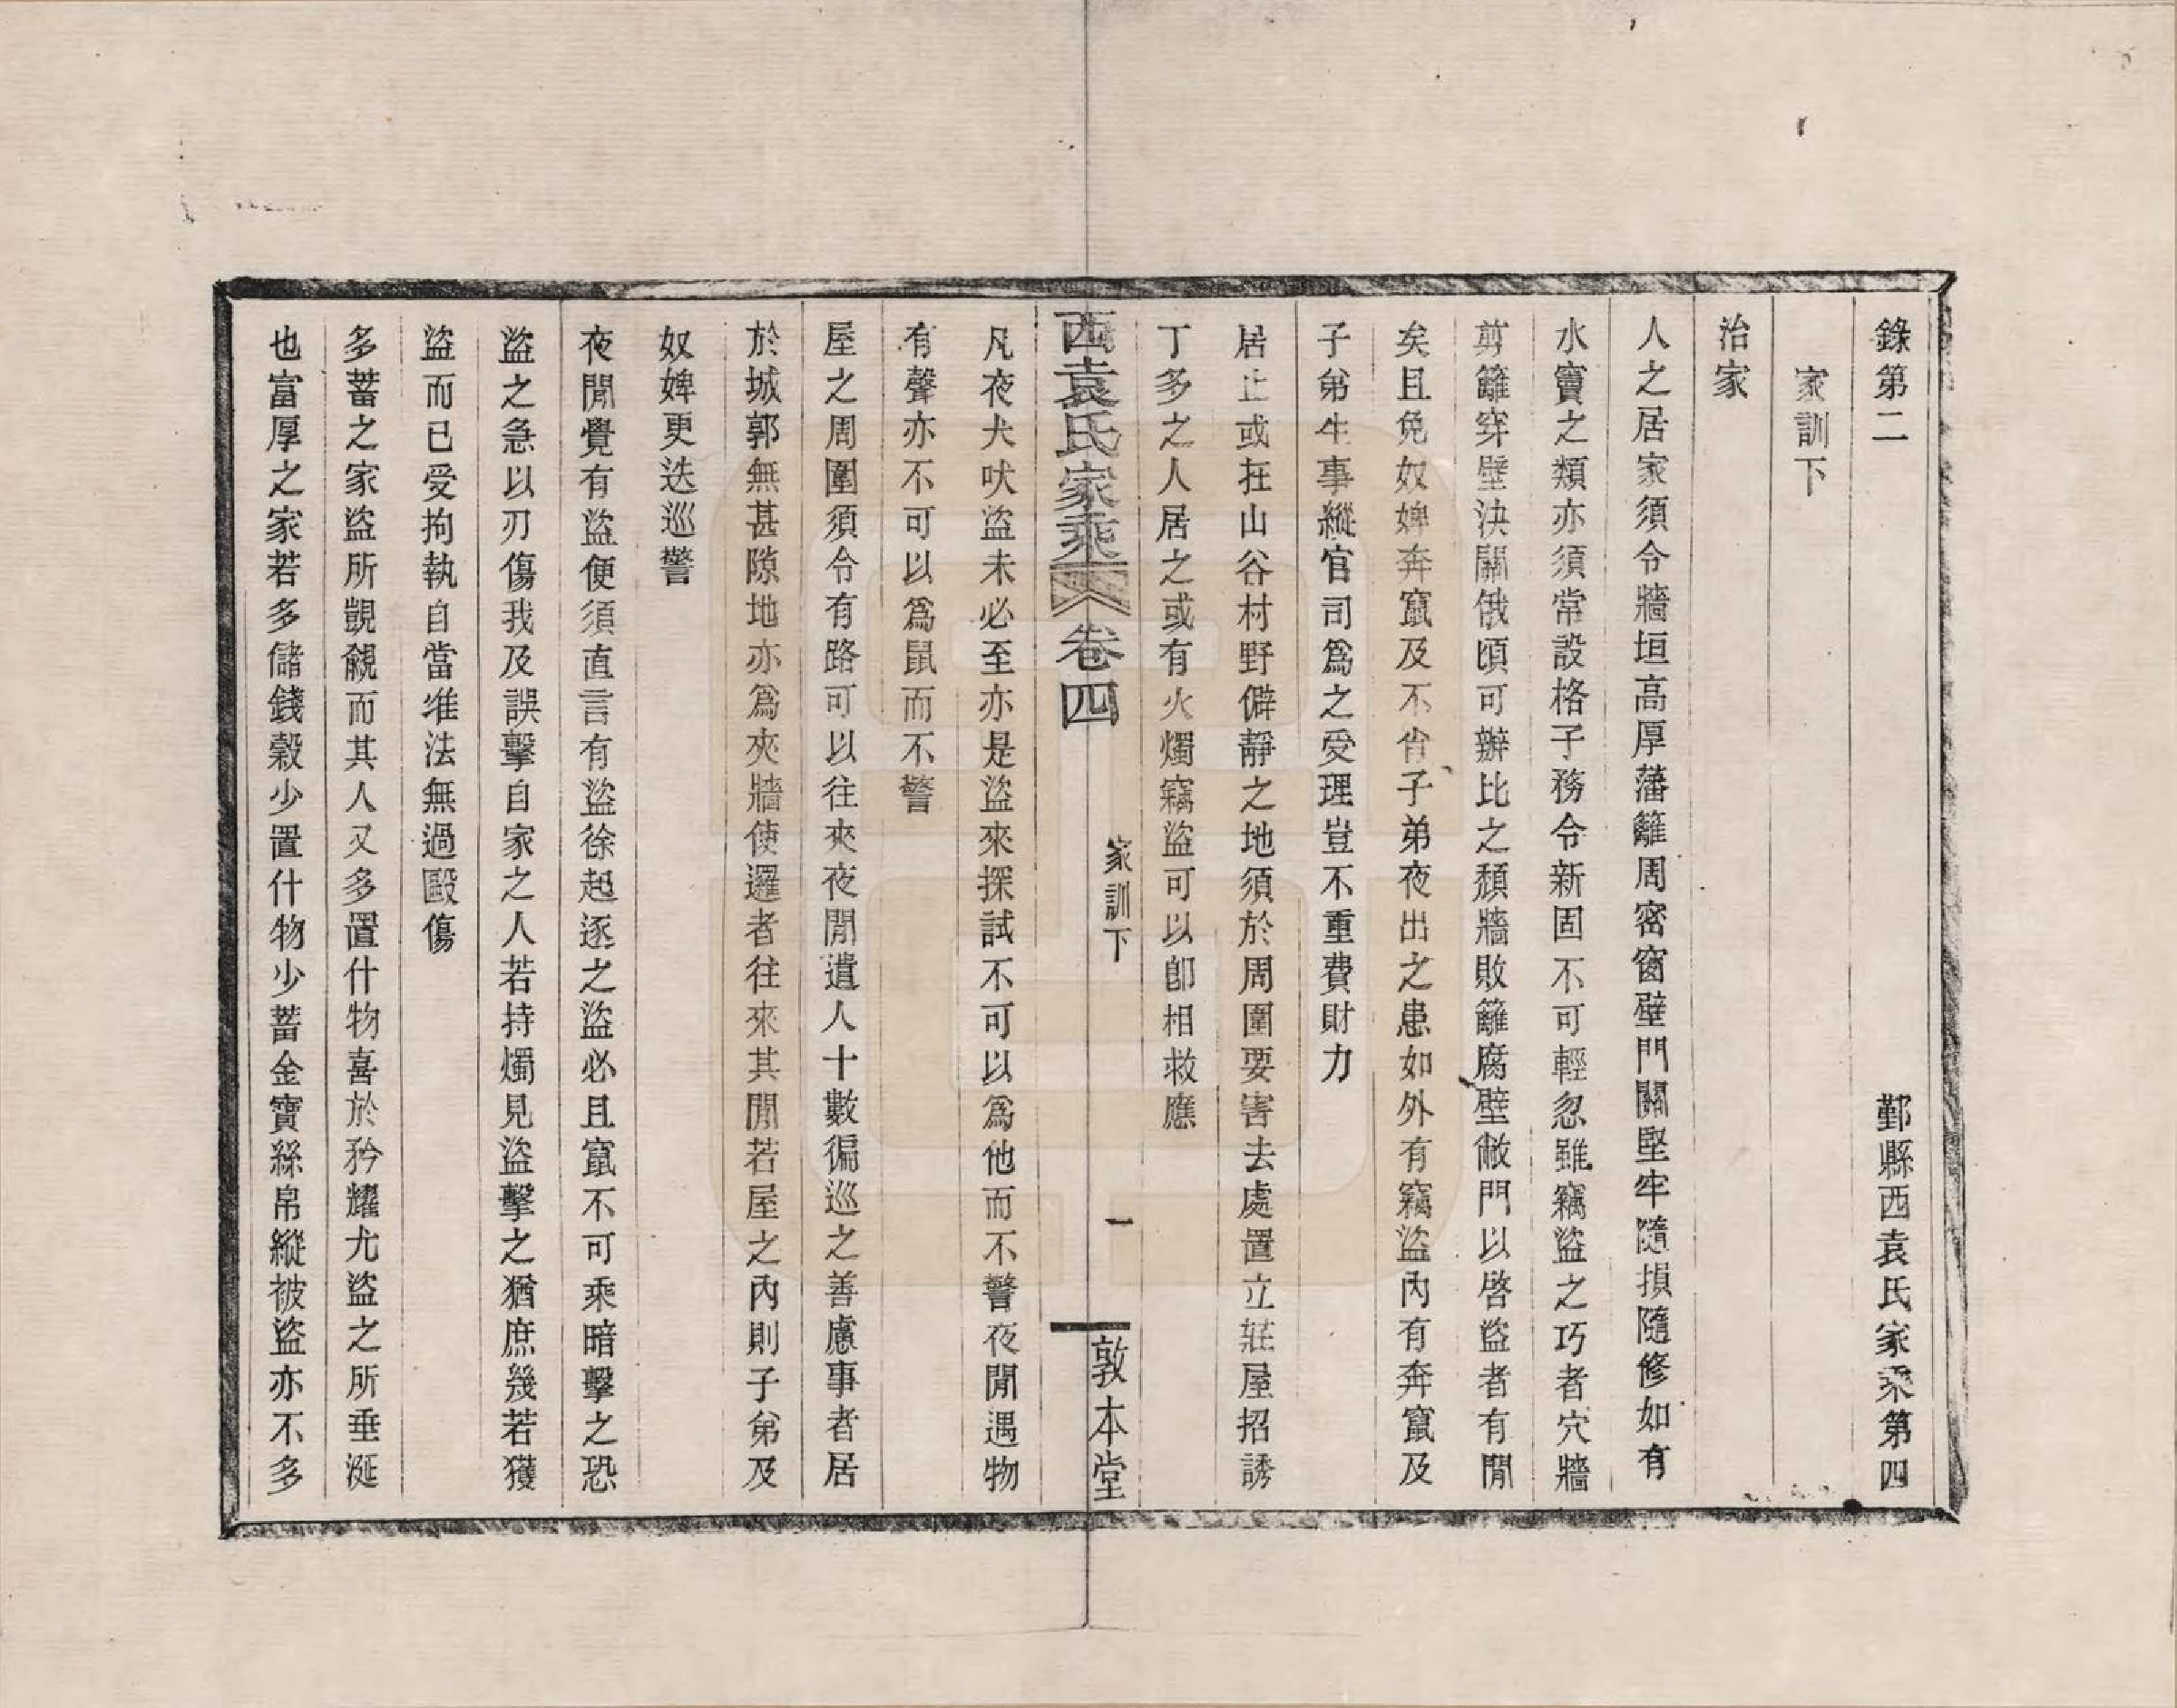 錄第二　鄞縣西袁氏家乘第四
家訓下
治家
人之居家須令牆垣高厚藩籬周密窗壁門關堅牢隨損隨修如有
水竇之類亦須常設格子務令新固不可輕忽雖竊盜之巧者穴牆
剪籬穿壁決關俄頃可辦比之頹牆敗籬腐壁敝門以啓盜者有閒
矣且免奴婢奔竄及不肖子弟夜出之患如外有竊盜內有奔竄及
子弟生事縱官司爲之受理豈不重費財力
居止或在山谷村野僻靜之地須於周圍要害去處置立莊屋招誘
丁多之人居之或有火燭竊盜可以卽相救應
西袁氏家乘　卷四　家訓下　一　敦本堂
凡夜犬吠盜未必至亦是盜來探試不可以爲他而不警夜閒遇物
有聲亦不可以爲鼠而不警
屋之周圍須令有路可以往來夜閒遣人十數徧巡之善慮事者居
於城郭無甚隙地亦爲夾牆使邏者往來其閒若屋之內則子弟及
奴婢更迭巡警
夜閒覺有盜便須直言有盜徐起逐之盜必且竄不可乘暗擊之恐
盜之急以刃傷我及誤擊自家之人若持燭見盜擊之猶庶幾若獲
盜而已受拘執自當准法無過毆傷
多蓄之家盜所覬覦而其人又多置什物喜於矜耀尤盜之所垂涎
也富厚之家若多儲錢穀少置什物少蓄金寶絲帛縱被盜亦不多